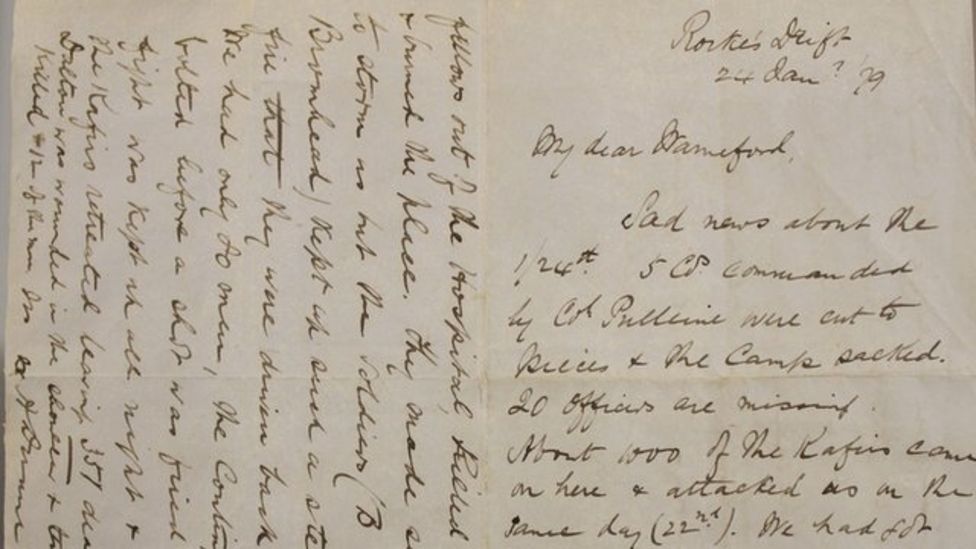 Rorke's Drift
24 Jany '79
My dear Warneford,
Sad news about the
1/24th. 5 Cos commanded
by Col Pulleine were cut to
pieces & the Camp sacked.
20 Officers are missing.
About 1000 of the Kafirs came
on here & attacked us on the
same day (22nd). We had got
fellows out of the Hospital, killed
& burned the place. They made
to storm us but the soldiers ('B
Bromhead) kept up such a ste
fire that they were driven back
We had only 80 men, the Contin
bolted before a shot was fired
fight was kept up all night &
the Kafirs retreated leaving 351 dea
Dalton was wounded in the shoulder &
killed & 12 of the men
Dunne